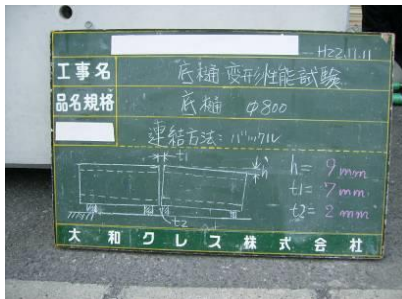 H22.11.11
工事名 底樋変形性能試験
品名規格 底樋 φ800
連結方法:バックル
t1
h
h= 9mm
t1= 7mm
t2= 2mm
t2
大和クレス株式会社